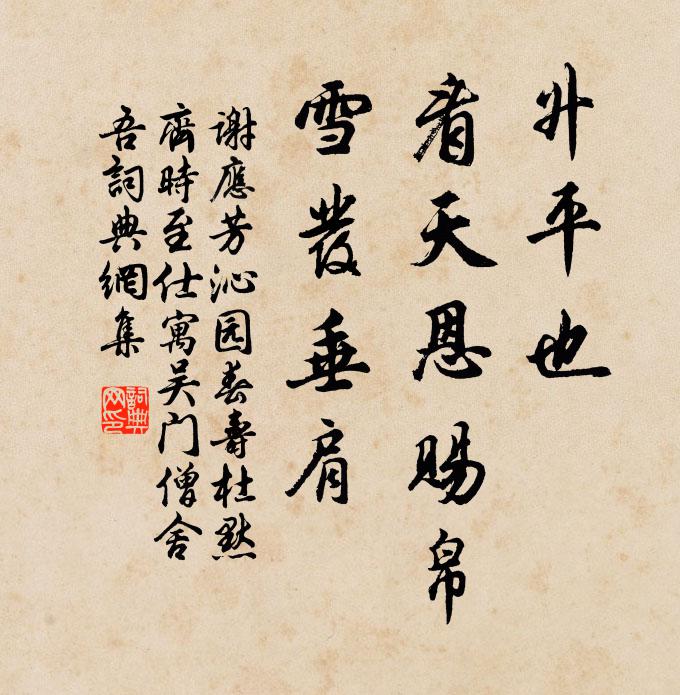 升平也
看天恩賜帛
雪發垂肩
謝應芳沁园春壽杜默
齋時至仕寓吴门僧舍
吾詞典網集
詞典网印